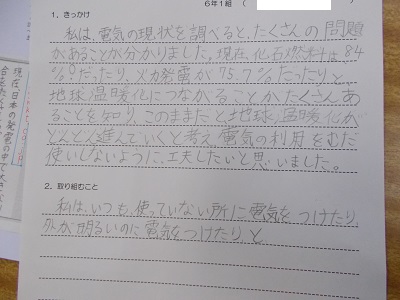 6年1組 (
1. きっかけ
私は、電気の現状を調べると、たくさんの問題
があることが分かりました。現在、化石燃料は84
%だったり、火力発電が75.7%だったりと、
地球温暖化につながることがたくさんあ
ることを知り、このままだと地球温暖化が
どんどん進んでいくと考え電気の利用をむだ
使いしないように、工夫したいと思いました。
2. 取り組むこと
私は、いつも、使っていない所に電気をつけたり、
外が明るいのに電気をつけたり、と
現在日本の発電の中で